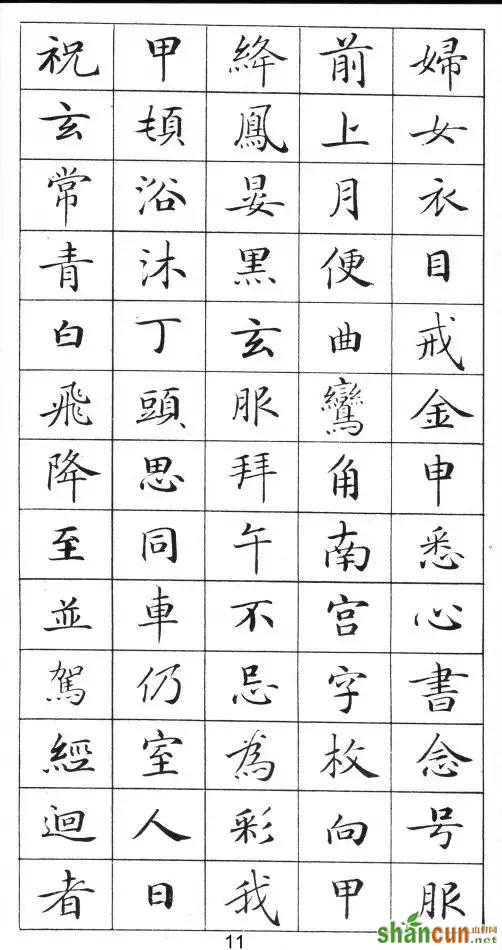 婦女衣目戒金申悉心書念号服
前上月便曲鸞角南宫字枚向甲
絳鳳晏黑玄服拜午不忌為彩我
甲頓浴沐丁頭思同車仍室人日
祝玄常青白飛降至並駕經迴者
11
shancun
.net